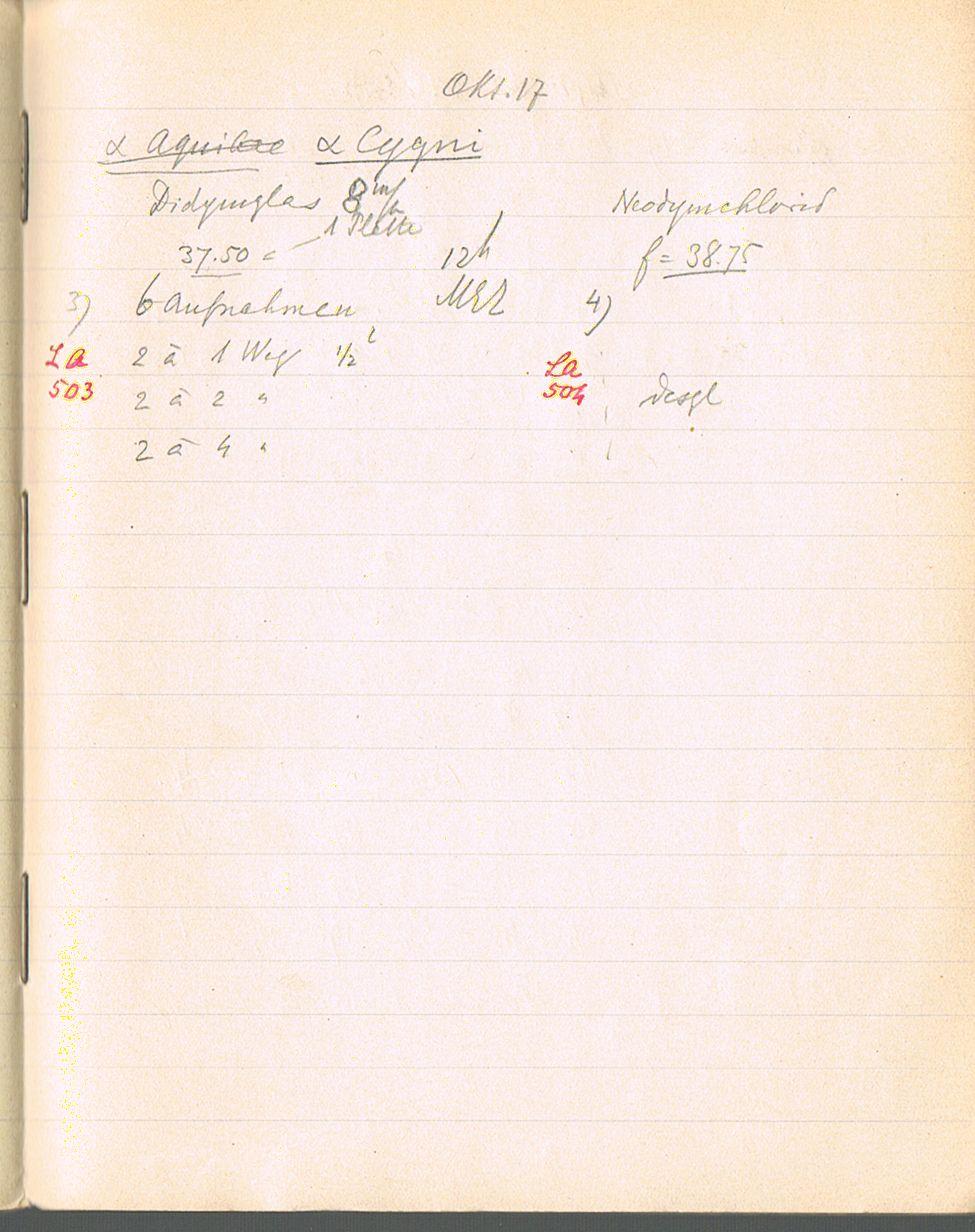 Okt. 17
α Aquilae α Cygni
Didymglas 8 auf
1 Platte
Neodymchlorid
37.50
12h
f = 38.75
3) 6 Aufnahmen MEZ 4)
La 2 à 1 Weg 1/2
La
503 2 à 2 "
504 desgl
2 à 4 "